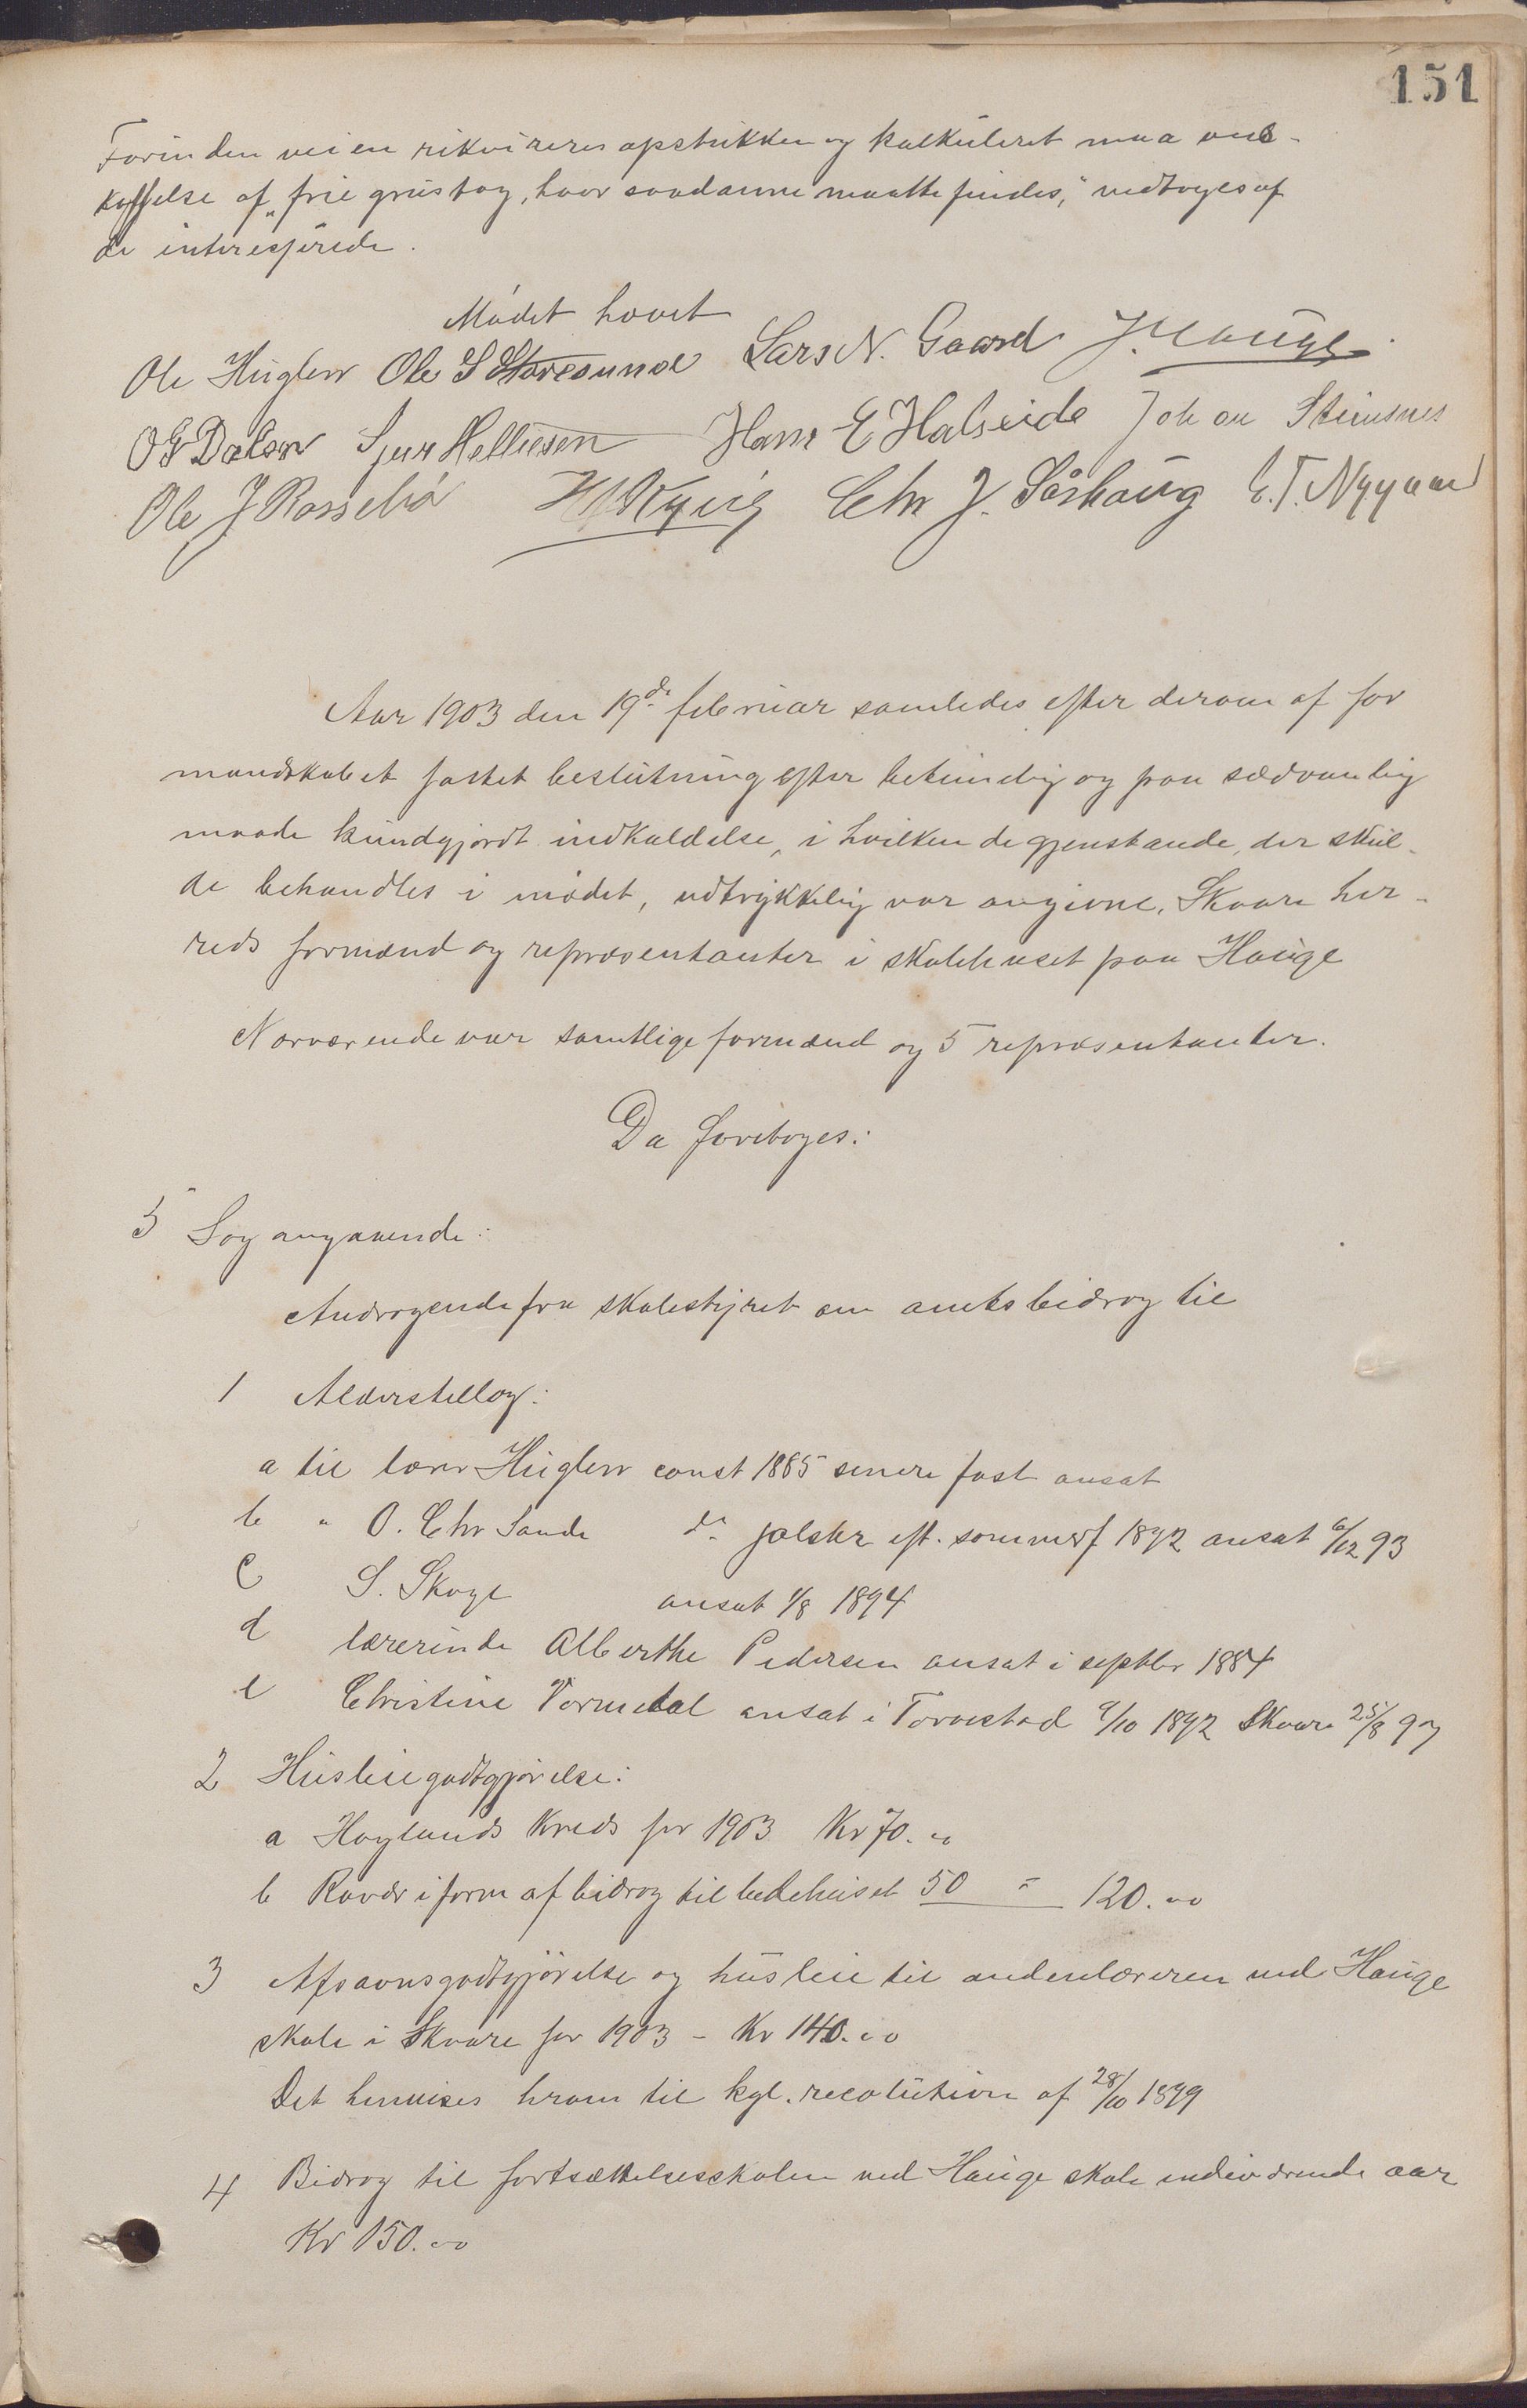 151
Forinden veien rikvireres opstukken og kalkuleret maa and-
kaffelse af "frie grustag, hvor saadanne maatte findes," vedtoges af
de interesserede.
Mødet hævet
Ole Huglen Ole S Storesund Lars N. Gaard J. Hauge
O G Dalen Sjur Helliesen Hans E Halseide Johan Steinsnes
Ole J Rossebø Chr J. Sørhaug E. T. Nygaard
Aar 1903 den 19de februar samledes efter derom af for
mandskabet fattet beslutning efter betimelig og paa sædvanlig
maade kundgjordt indkaldelse, i hvilken de gjenstande, der skul-
de behandles i mødet, udtrykkelig var angivne, Skaare her-
reds formænd og repræsentanter i skolehuset paa Hauge
Nærværende var samtlige formænd og 5 repræsentanter.
Da foretoges:
5 Sag angaaende:
Andragende fra skolestyret om amtsbidrag til
1 Alderstillæg:
a til lærer Huglen const 1885 senere fast ansat
b " O. Chr Sande do eft. sommerf 1892 ansat 6/12 93
c S. Skoge ansat 1/8 1894
d lærerinde Alberthe Pedersen ansat i septbr 1884
e Christine Vormedal ansat i Torvestad 9/10 1892 Skaare 25/8 97
2 Husleiegodtgjørelse:
a Haylands Kreds for 1903 Kr 70.00
b Røvær i form af bidrag til bedehuset 50 " 120.00
3 Afsavnsgodtgjørelse og husleie til andenlæreren ved Hauge
skole i Skaare for 1903 - Kr 140.00
Det henvises herom til kgl. resolution af 28/10 1899
4 Bidrag til fortsættelsesskolen ved Hauge skole indeværende aar
Kr 150.00